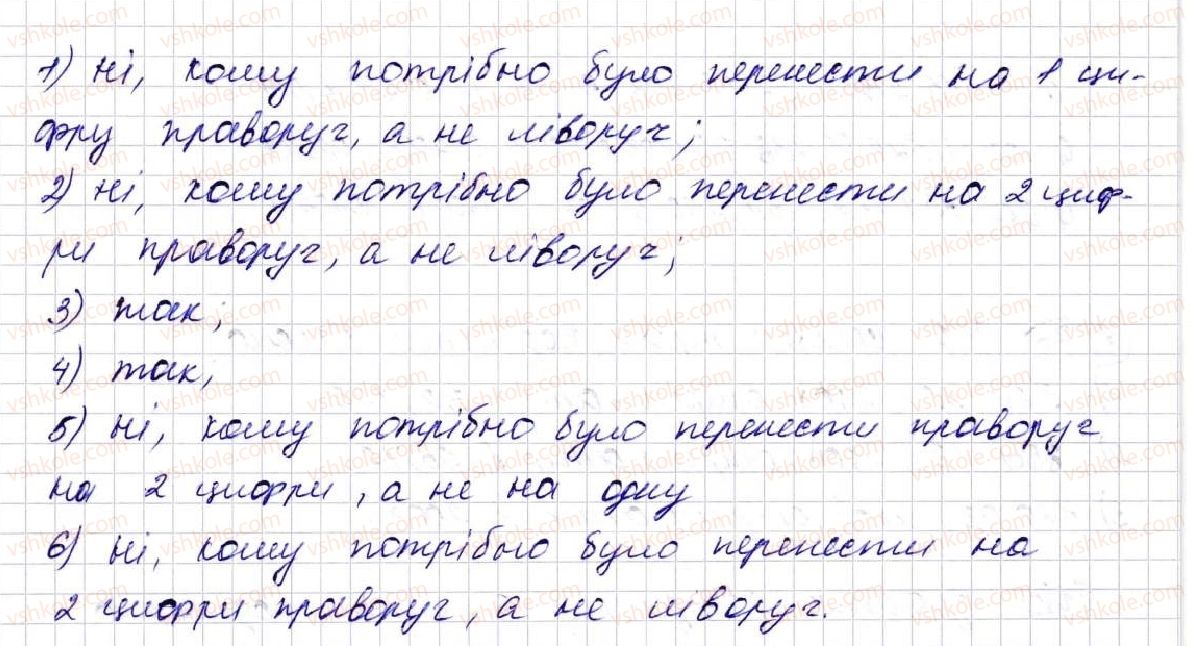 1) ні, кому потрібно було перенести на 1 ци-
фру праворуч, а не ліворуч;
2) ні, кому потрібно було перенести на 2 циф-
ри праворуч, а не ліворуч;
3) так;
4) так;
5) ні, кому потрібно було перенести праворуч
на 2 цифри, а не на одну
6) ні, кому потрібно було перенести на
2 цифри праворуч, а не ліворуч.
vshkole.com